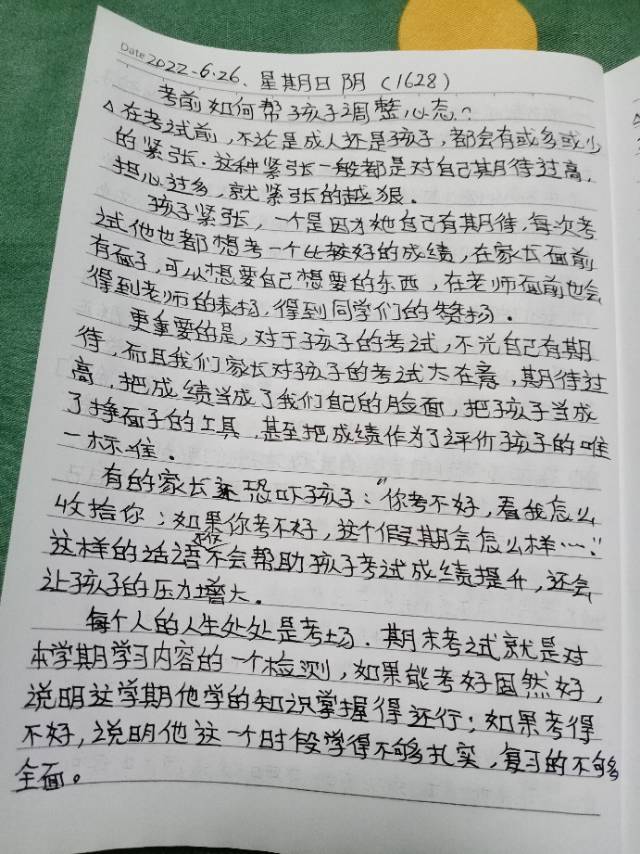 Date 2022-6-26. 星期日 阴 (1628)
考前如何帮孩子调整心态?
△在考试前,不论是成人还是孩子,都会有或多或少
的紧张.这种紧张一般都是对自己期待过高,
担心过多,就紧张的越狠.
孩子紧张,一个是因为她自己有期待,每次考
试他也都想考一个比较好的成绩,在家长面前
有面子,可以想要自己想要的东西,在老师面前也会
得到老师的表扬,得到同学们的赞扬.
更重要的是,对于孩子的考试,不光自己有期
待,而且我们家长对孩子的考试太在意,期待过
高,把成绩当成了我们自己的脸面,把孩子当成
了挣面子的工具,甚至把成绩作为了评价孩子的唯
一标准.
有的家长恐吓孩子:“你考不好,看我怎么
收拾你;如果你考不好,这个假期会怎么样……”
这样的话语不仅不会帮助孩子考试成绩提升,还会
让孩子的压力增大.
每个人的人生处处是考场.期末考试就是对
本学期学习内容的一个检测,如果能考好固然好,
说明这学期他学的知识掌握得还行;如果考得
不好,说明他这一个时段学得不够扎实,复习的不够
全面。